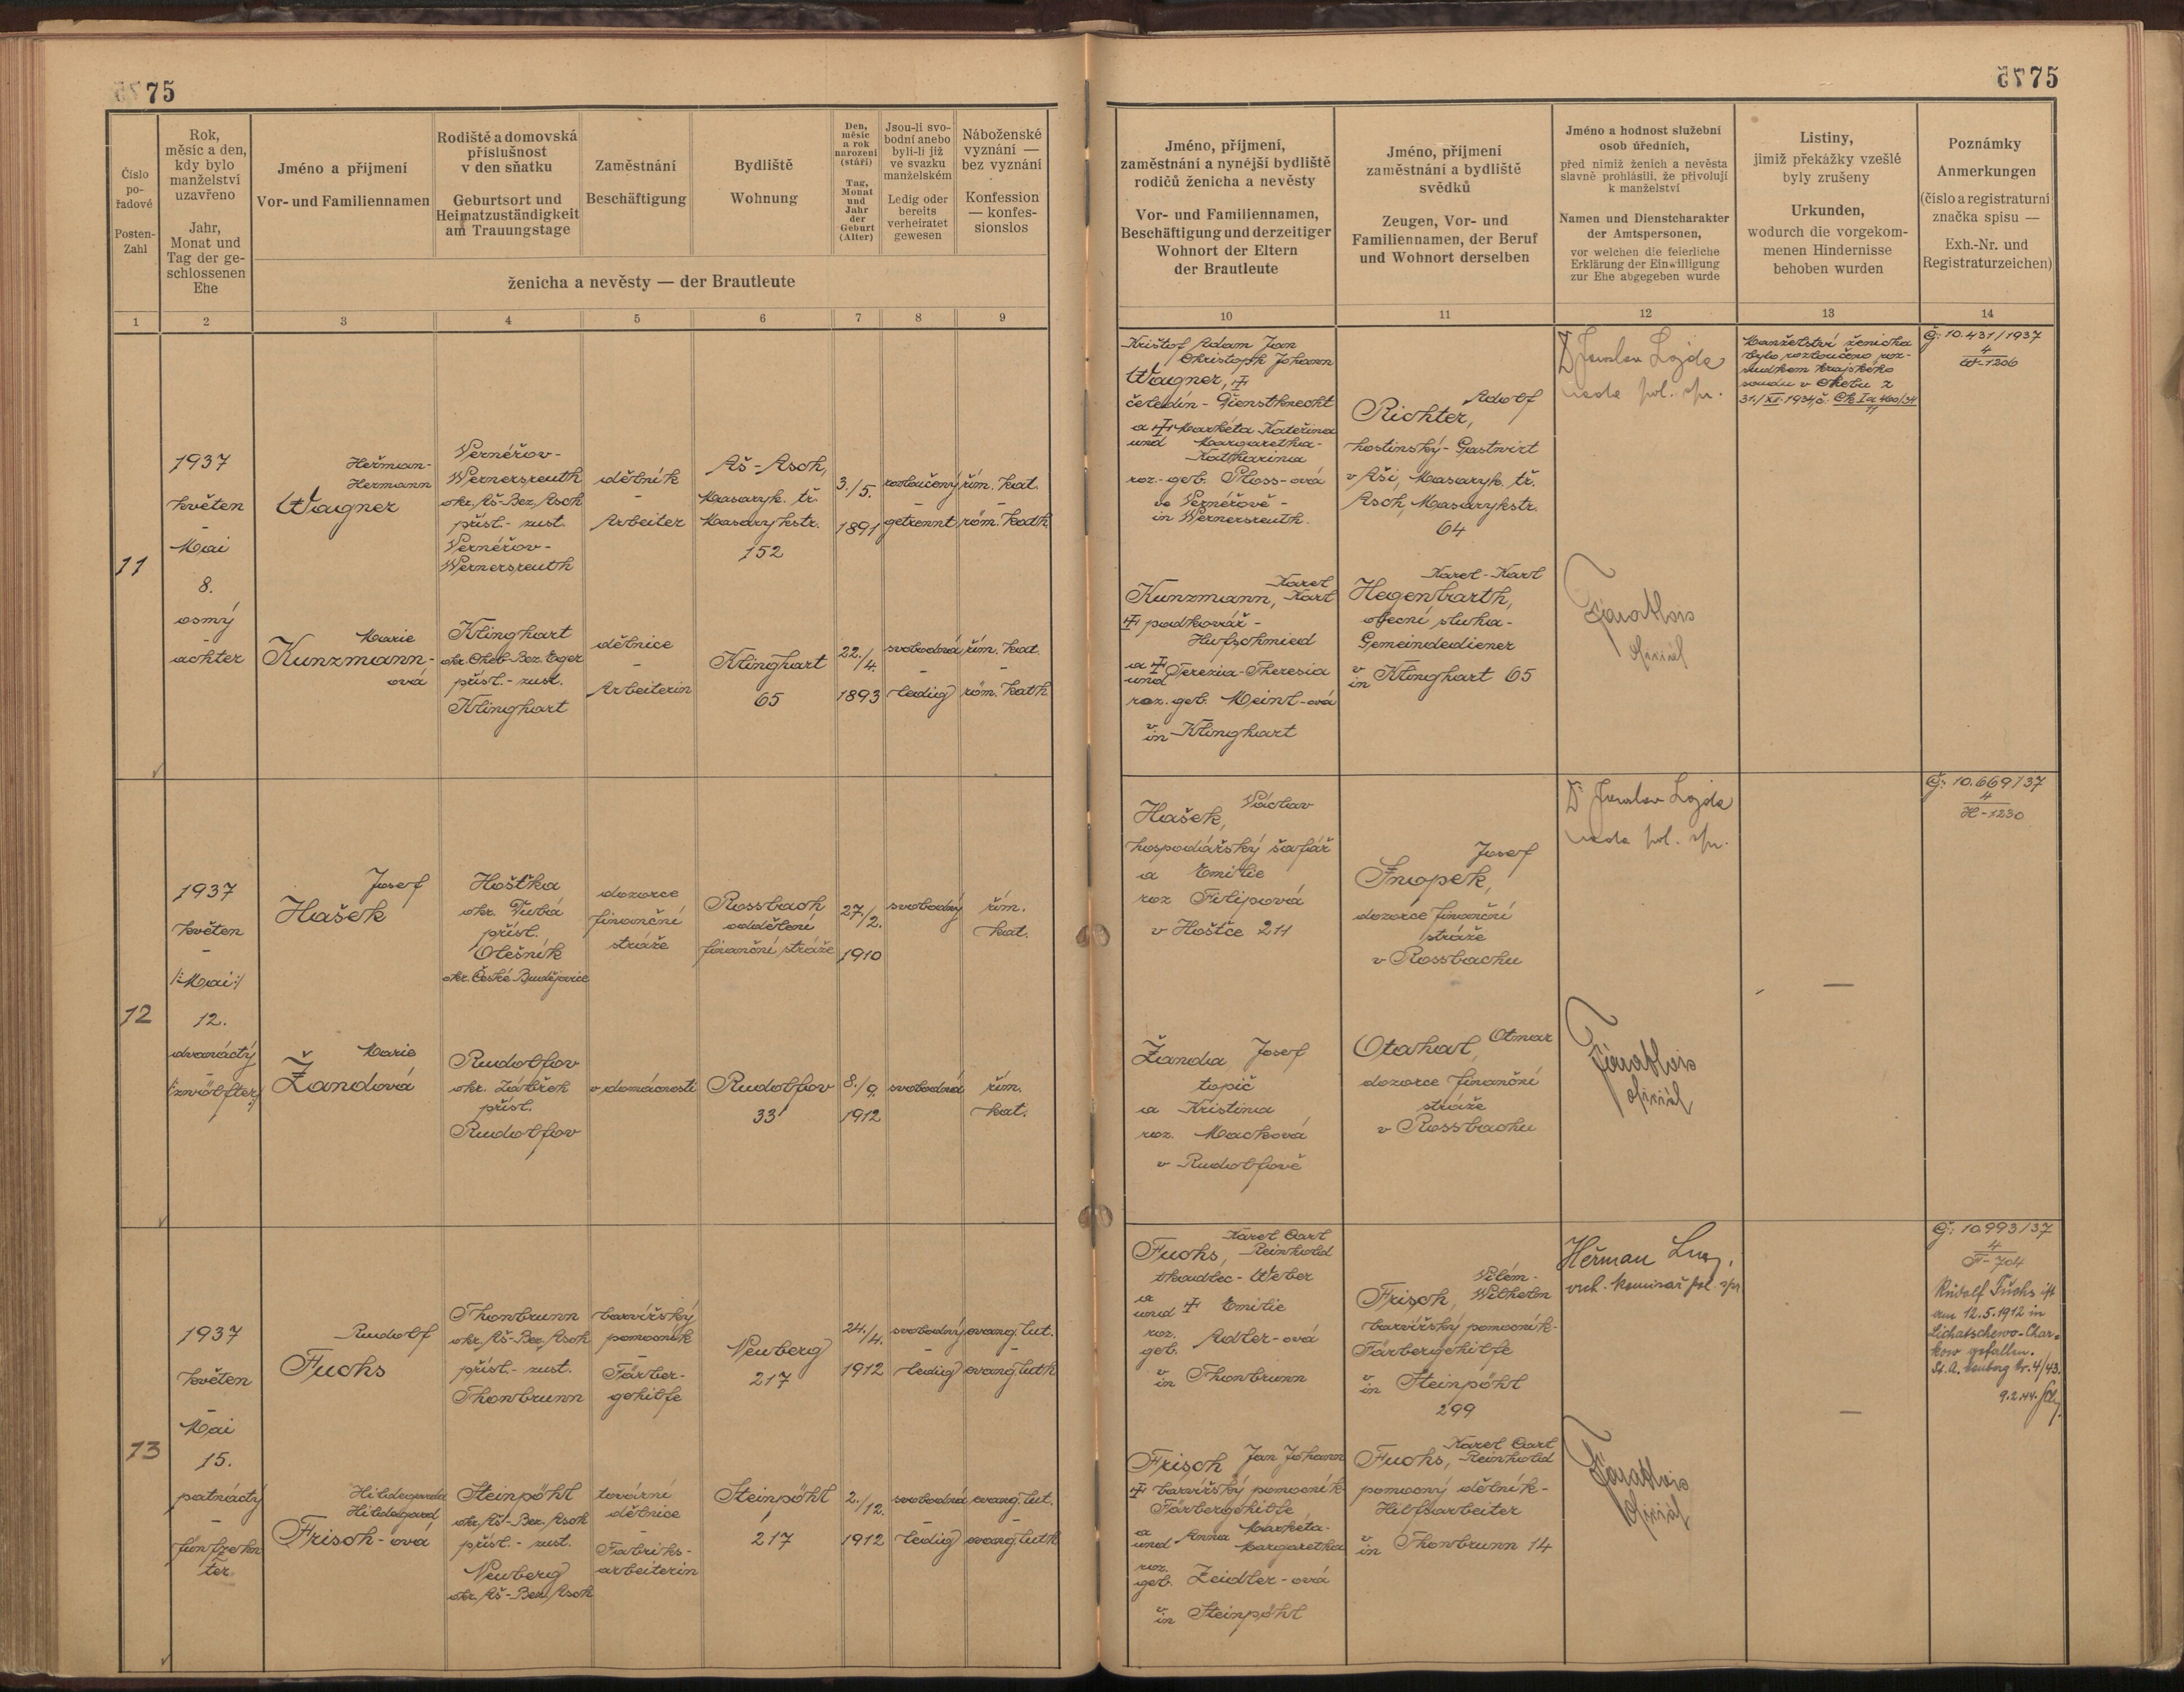 75
75
Číslo
po-
řadové
Posten-
Zahl
Rok,
měsíc a den,
kdy bylo
manželství
uzavřeno
Jahr,
Monat und
Tag der ge-
schlossenen
Ehe
Jméno a příjmení
Vor- und Familiennamen
Rodiště a domovská
příslušnost
v den sňatku
Geburtsort und
Heimatzuständigkeit
am Trauungstage
Zaměstnání
Beschäftigung
Bydliště
Wohnung
Den,
měsíc
a rok
narození
(stáří)
Tag,
Monat
und
Jahr
der
Geburt
(Alter)
Jsou-li svo-
bodní anebo
byli-li již
ve svazku
manželském
Ledig oder
bereits
verheiratet
gewesen
Náboženské
vyznání —
bez vyznání
Konfession
— konfes-
sionslos
ženicha a nevěsty — der Brautleute
Jméno, příjmení,
zaměstnání a nynější bydliště
rodičů ženicha a nevěsty
Vor- und Familiennamen,
Beschäftigung und derzeitiger
Wohnort der Eltern
der Brautleute
Jméno, příjmení
zaměstnání a bydliště
svědků
Zeugen, Vor- und
Familiennamen, der Beruf
und Wohnort derselben
Jméno a hodnost služební
osob úředních,
před nimiž ženich a nevěsta
slavně prohlásili, že přivolují
k manželství
Namen und Dienstcharakter
der Amtspersonen,
vor welchen die feierliche
Erklärung der Einwilligung
zur Ehe abgegeben wurde
Listiny,
jimiž překážky vzešlé
byly zrušeny
Urkunden,
wodurch die vorgekom-
menen Hindernisse
behoben wurden
Poznámky
Anmerkungen
(číslo a registraturní
značka spisu —
Exh.-Nr. und
Registraturzeichen)
1 2 3 4 5 6 7 8 9 10 11 12 13 14
11
1937
květen
-
Mai
8.
osmý
-
achter
Heřman-
Hermann
Wagner
Vernéřov-
Wernersreuth
okr. Aš-Bez. Asch
přísl.- zust.
Vernéřov-
Wernersreuth
dělník
-
Arbeiter
Aš-Asch,
Masaryk. tř.
Masarykstr.
152
3./5.
1891
rozloučený
-
getrennt
řím. kat.
-
röm. kath.
Marie
Kunzmann-
ová
Klinghart
okr. Cheb-Bez. Eger
přísl.- zust.
Klinghart
dělnice
-
Arbeiterin
Klinghart
65
22./4.
1893
svobodná
-
ledig
řím. kat.
-
röm. kath.
Krištof Adam Jan
Christoph Johann
Wagner, ‡
čeledín- Dienstknecht
a ‡ Markéta Kateřina
und Margaretha-
Katharina
roz.-geb. Ploss-ová
ve Vernéřově-
in Wernersreuth.
Kunzmann, Karel
Karl
‡ podkovář-
Hufschmied
a ‡
und Terezia-Theresia
roz. geb. Meinl-ová
v
in Klinghart
Adolf
Richter,
hostinský- Gastwirt
v Aši, Masaryk. tř.
Asch, Masarykstr.
64
Karel-Karl
Hegenbarth,
obecní sluha-
Gemeindediener
v
in Klinghart 65
Dr Jaroslav Lojda
rada pol. spr.
oficiál
Manželství ženicha
bylo rozloučeno roz-
sudkem krajského
soudu v Chebu z
31./XI. 1934, č: Ck Ia 460/34
11
Č: 10.431/1937
4
W-1206
12
1937
květen
-
/:Mai:/
12.
dvanáctý
-
/:zwölfter:/
Josef
Hašek
Hoštka
okr. Dubá
přísl.
Olešník
okr. České Budějovice
dozorce
finanční
stráže
Rossbach
oddělení
finanční stráže
27./2.
1910
svobodný
řím.
kat.
Marie
Žandová
Rudolfov
okr. Zábřeh
přísl.
Rudolfov
v domácnosti
Rudolfov
33
8./9.
1912
svobodná
řím.
kat.
Hašek, Václav
hospodářský šafář
a Emilie
roz Filipová
v Hoštce 211
Žanda Josef
topič
a Kristina
roz. Macková
v Rudolfově
Josef
Šnopek,
dozorce finanční
stráže
v Rossbachu
Otahal, Otmar
dozorce finanční
stráže
v Rossbachu
Dr Jaroslav Lojda
rada pol. spr.
oficiál
—
Č: 10.669/37
4
H-1230
13
1937
květen
-
Mai
15.
patnáctý
-
fünfzehn
ter.
Rudolf
Fuchs
Thonbrunn
okr. Aš-Bez. Asch
přísl.- zust.
Thonbrunn
barvířský
pomocník
-
Färber-
gehilfe
Neuberg
217
24./4.
1912
svobodný
-
ledig
evang. lut.
-
evang. luth.
Hildegarda
Hildegard
Frisch-ová
Steinpöhl
okr. Aš-Bez. Asch
přísl.- zust.
Neuberg
okr. Aš-Bez. Asch
tovární
dělnice
-
Fabriks-
arbeiterin
Steinpöhl
217
2./12.
1912
svobodná
-
ledig
evang. lut.
-
evang. luth.
Karel Carl
Fuchs, Reinhold
tkadlec-Weber
a
und ‡ Emilie
roz.
geb. Adler-ová
v
in Thonbrunn
Frisch Jan Johann
‡ barvířský pomocník-
Färbergehilfe
a
und Anna Markéta-
Margaretha
roz.
geb. Zeidler-ová
v
in Steinpöhl
Vilém-
Frisch, Wilhelm
barvířský pomocník-
Färbergehilfe
v
in Steinpöhl
299
Karel Carl
Fuchs, Reinhold
pomocný dělník-
Hilfsarbeiter
v
in Thonbrunn 14
Heřman
vrch. komisař pol. spr.
oficiál
—
Č: 10.993/37
4
F-704
Rudolf Fuchs ist
am 12.5.1912 in
Lichatschewo-Char-
kow gefallen.
St. A. Neuberg Nr. 4/43.
9.2.44.